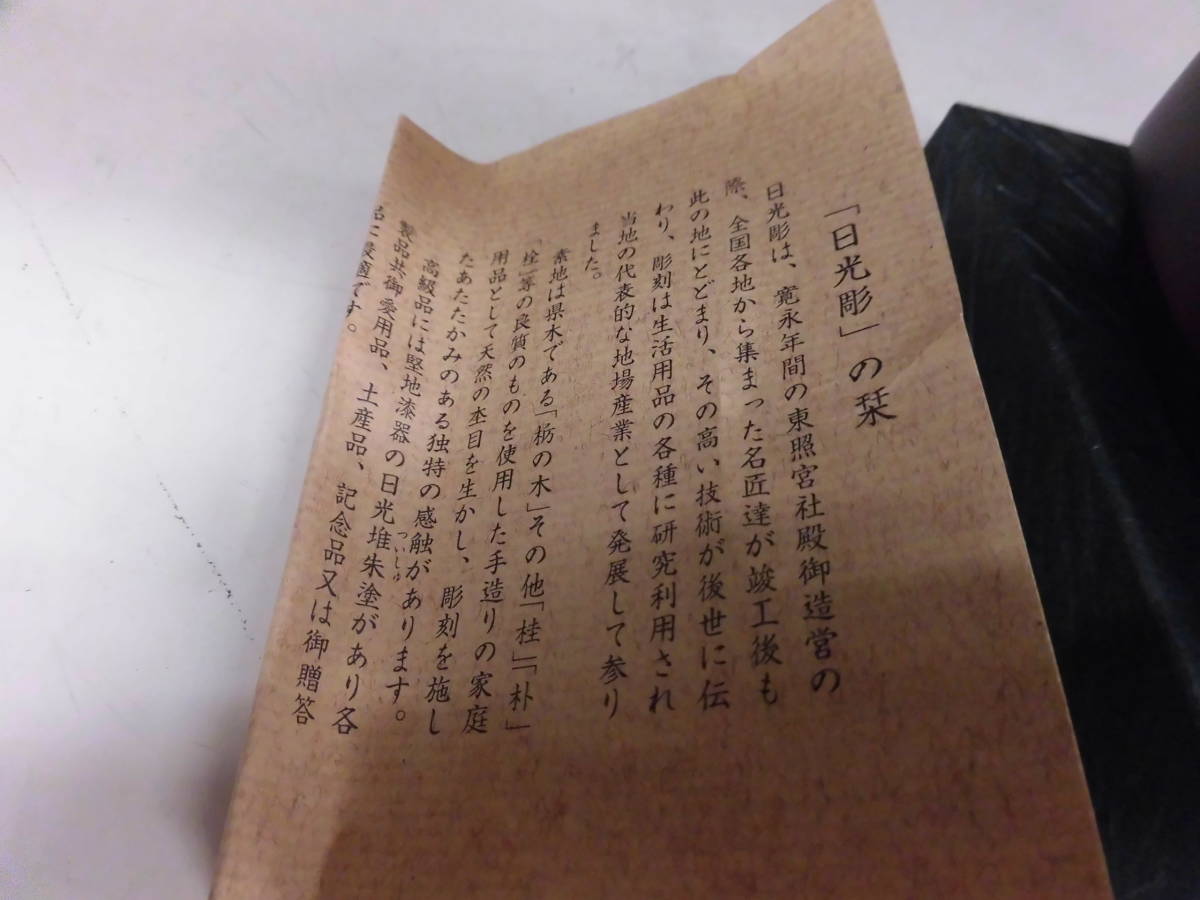 「日光彫」の栞
日光彫は、寛永年間の東照宮社殿御造営の
際、全国各地から集まった名匠達が竣工後も
此の地にとどまり、その高い技術が後世に伝
わり、彫刻は生活用品の各種に研究利用され
当地の代表的な地場産業として発展して参り
ました。
素地は県木である「栃の木」その他「桂」「朴」
「栓」等の良質のものを使用した手造りの家庭
用品として天然の杢目を生かし、彫刻を施し
たあたたかみのある独特の感触があります。
高級品には堅地漆器の日光堆朱塗があり各
ついしゅ
製品共御愛用品、土産品、記念品又は御贈答
品に最適です。